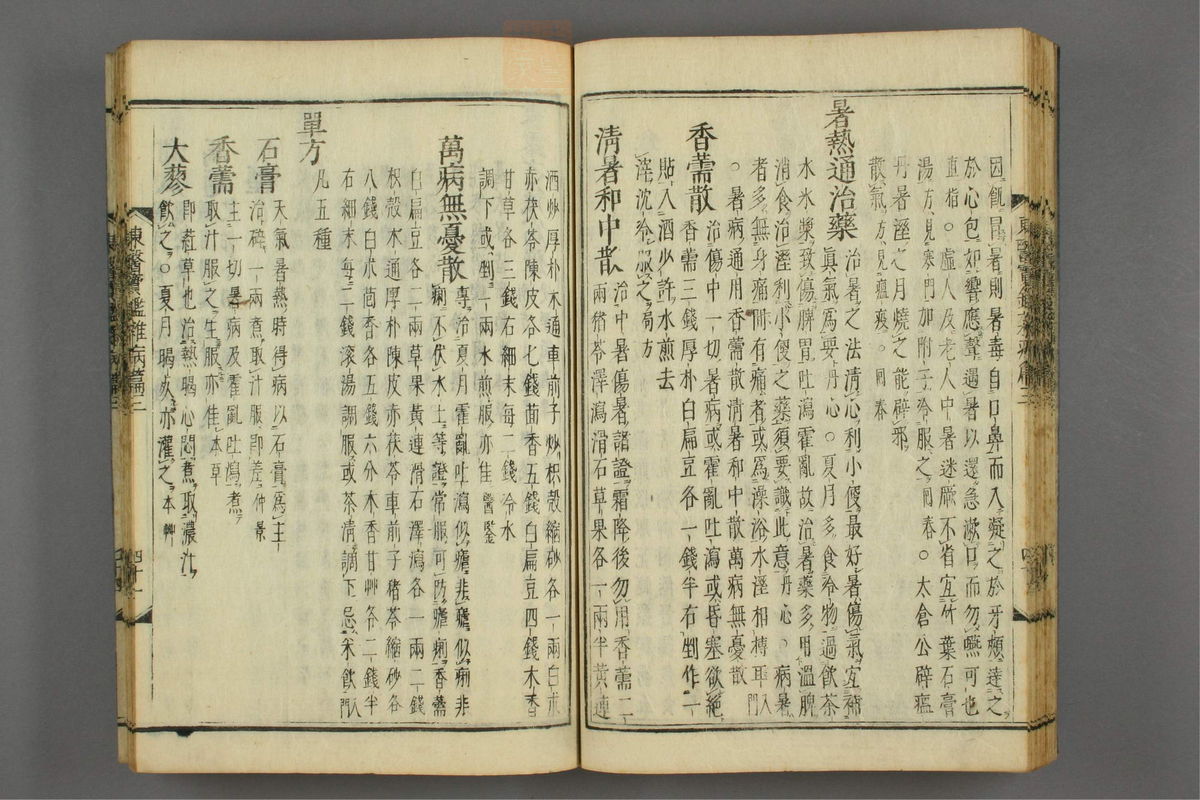 因飢冒暑則暑毒自口鼻而入凝之於牙頰達之
於心包如響應聲遇暑以還急漱口而勿嚥可也
直指○虛人及老人中暑迷厥不省宜竹葉石膏
湯方見寒門加附子冷服之回春○太倉公辟瘟
丹暑濕之月燒之能辟邪
散氣方見瘟疫○回春
暑熱通治藥 治暑之法淸心利小便最好暑傷氣宜補
眞氣爲要丹心○夏月多食冷物過飮茶
水氷漿致傷脾胃吐瀉霍亂故治暑藥多用溫脾
消食治濕利小便之藥須要識此意丹心○病暑
者多無身痛間有痛者或爲澡浴水濕相搏耳入門
○暑病通用香薷散淸暑和中散萬病無憂散
香薷散 治傷中一切暑病或霍亂吐瀉或昏塞欲絶
香薷三錢厚朴白扁豆各一錢半右剉作一
貼入酒少許水煎去
滓沈冷服之局方
淸暑和中散 治中暑傷暑諸證霜降後勿用香薷二
兩猪苓澤瀉滑石草果各一兩半黃連
酒炒厚朴木通車前子炒枳殼縮砂各一兩白朮
赤茯苓陳皮各七錢茴香五錢白扁豆四錢木香
甘草各三錢右細末每二錢冷水
調下或剉一兩水煎服亦佳醫鑒
萬病無憂散 專治夏月霍亂吐瀉似瘧非瘧似痢非
痢不伏水土等證常服可防瘧痢香薷
白扁豆各二兩草果黃連滑石澤瀉各一兩二錢
枳殼木通厚朴陳皮赤茯苓車前子猪苓縮砂各
八錢白朮茴香各五錢六分木香甘艸各二錢半
右細末每二錢滾湯調服或茶淸調下忌米飮入門
單方 凡五種
石膏 天氣暑熱時得病以石膏爲主
治碎一兩煮取汁服卽差仲景
香薷 主一切暑病及霍亂吐瀉煮
取汁服之生服亦佳本草
大蓼 卽葒草也治熱暍心悶煮取濃汁
飮之○夏月暍死亦灌之本艸
東醫寶鑑雜病篇三